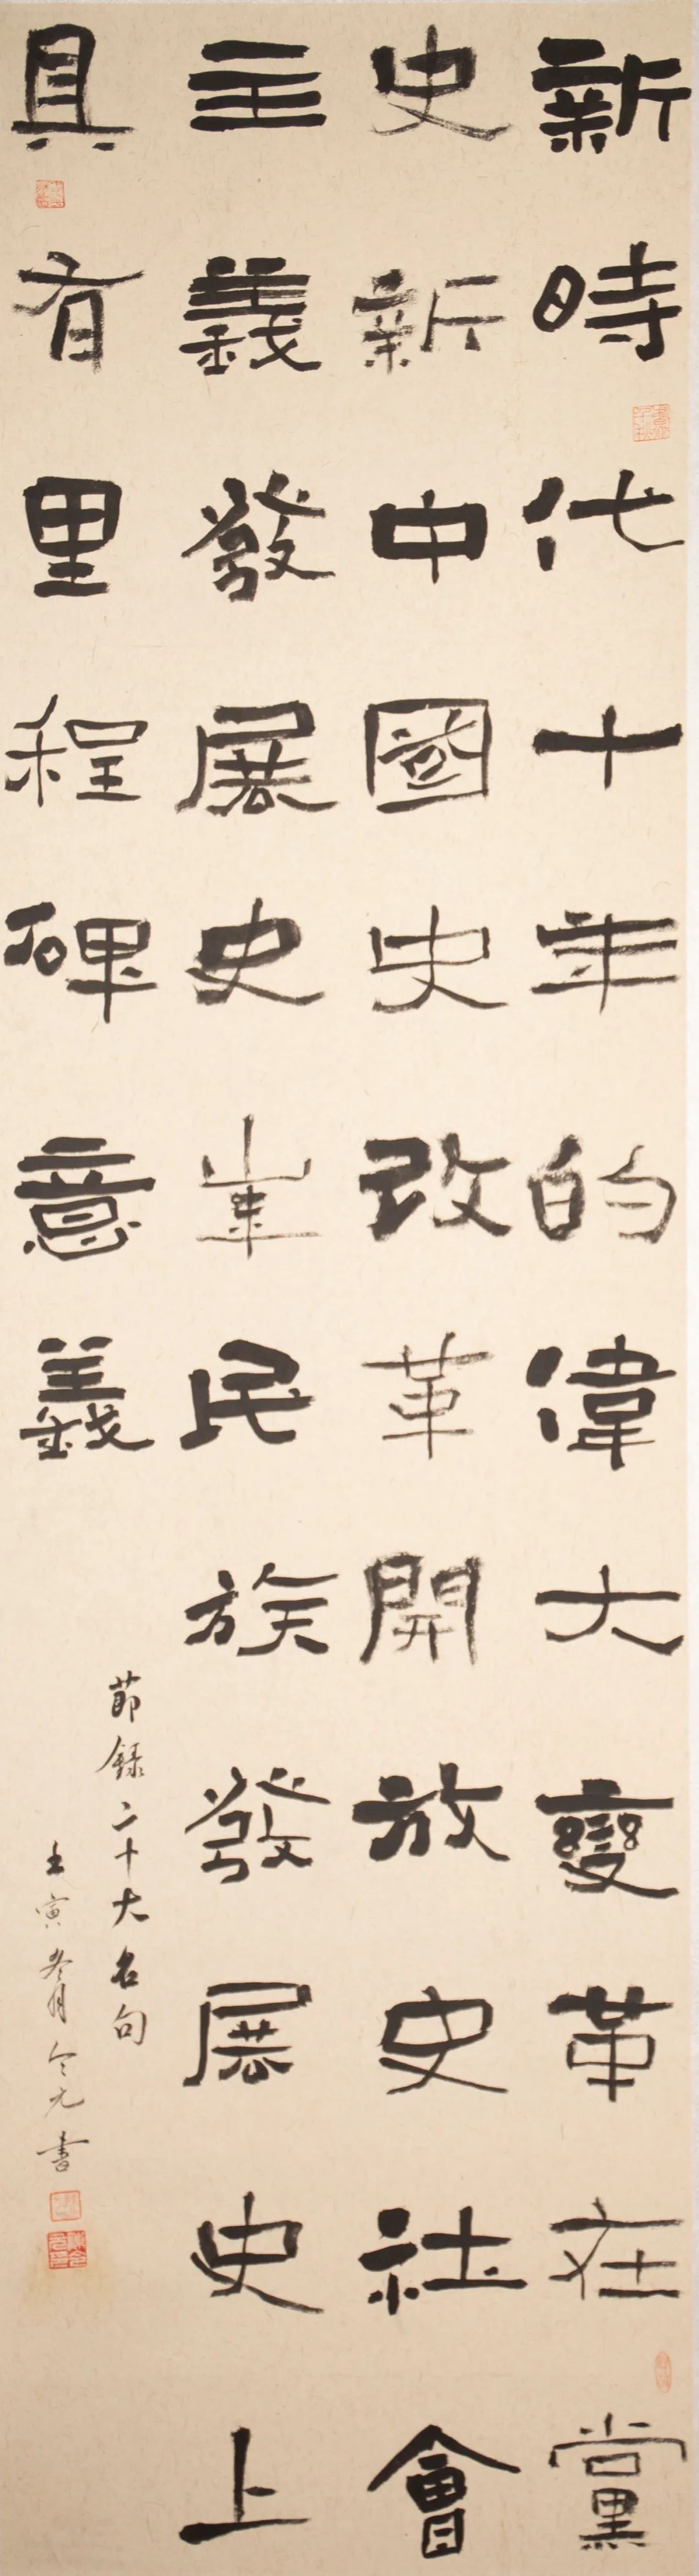 新時代十年的偉大變革在黨
史新中國史改革開放史社會
主義發展史崋民族發展史上
具有里程碑意義
莭錄二十大名句
壬寅冬月令元書